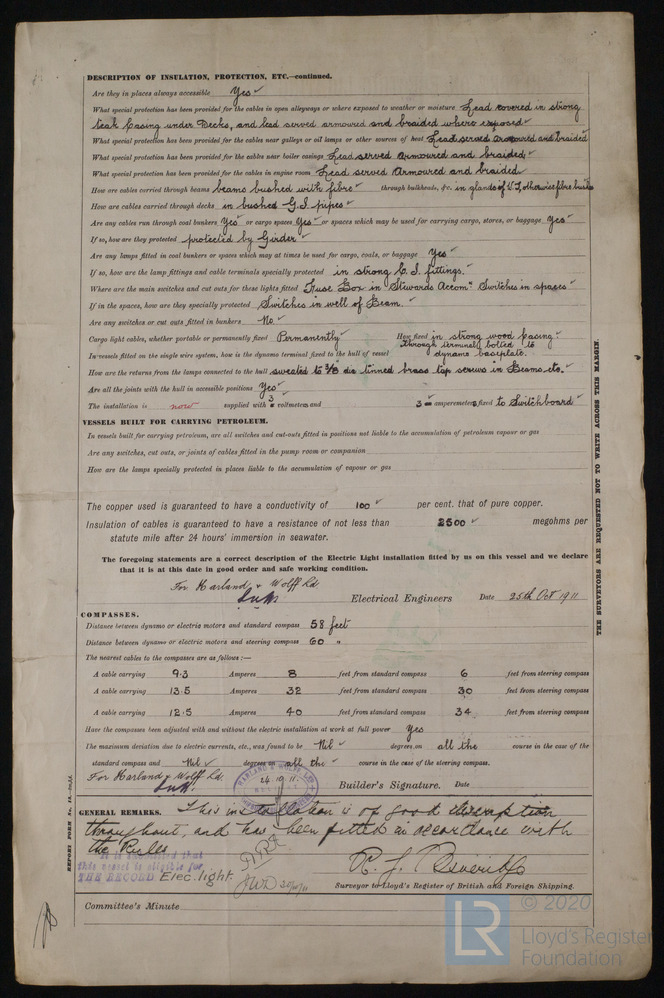 DESCRIPTION OF INSULATION, PROTECTION, ETC.—continued.
Are they in places always accessible Yes
What special protection has been provided for the cables in open alleyways or where exposed to weather or moisture Lead covered in strong
teak casing under Decks, and lead served armoured and braided where exposed
What special protection has been provided for the cables near galleys or oil lamps or other sources of heat Lead served armoured and braided
What special protection has been provided for the cables near boiler casings Lead served armoured and braided
What special protection has been provided for the cables in engine room Lead served Armoured and braided
How are cables carried through beams beams bushed with fibre through bulkheads, &c. in glands of W.T, otherwise fibre bushes
How are cables carried through decks in bushed G.I. pipes
Are any cables run through coal bunkers Yes or cargo spaces Yes or spaces which may be used for carrying cargo, stores, or baggage Yes
If so, how are they protected protected by Girder
Are any lamps fitted in coal bunkers or spaces which may at times be used for cargo, coals, or baggage Yes
If so, how are the lamp fittings and cable terminals specially protected in strong C.I. fittings.
Where are the main switches and cut outs for these lights fitted Fuse Box in Stewards Accomn. Switches in spaces
If in the spaces, how are they specially protected Switches in well of Beam.
Are any switches or cut outs fitted in bunkers No
Cargo light cables, whether portable or permanently fixed Permanently How fixed in strong wood casing
In vessels fitted on the single wire system, how is the dynamo terminal fixed to the hull of vessel through terminal bolted to dynamo baseplate.
How are the returns from the lamps connected to the hull sweated to 3/8 dia tinned brass tap screws in Beams etc.
Are all the joints with the hull in accessible positions Yes
The installation is now supplied with 3 voltmeters and 3 amperemeters fixed to Switchboard
VESSELS BUILT FOR CARRYING PETROLEUM.
In vessels built for carrying petroleum, are all switches and cut-outs fitted in positions not liable to the accumulation of petroleum vapour or gas
Are any switches, cut outs, or joints of cables fitted in the pump room or companion
How are the lamps specially protected in places liable to the accumulation of vapour or gas
The copper used is guaranteed to have a conductivity of 100 per cent. that of pure copper.
Insulation of cables is guaranteed to have a resistance of not less than 2500 megohms per
statute mile after 24 hours' immersion in seawater.
The foregoing statements are a correct description of the Electric Light installation fitted by us on this vessel and we declare
that it is at this date in good order and safe working condition.
For Harland & Wolff Ld.
Electrical Engineers Date 25th Oct 1911
COMPASSES.
Distance between dynamo or electric motors and standard compass 58 feet
Distance between dynamo or electric motors and steering compass 60 "
The nearest cables to the compasses are as follows:—
A cable carrying 9.3 Amperes 8 feet from standard compass 6 feet from steering compass
A cable carrying 13.5 Amperes 32 feet from standard compass 30 feet from steering compass
A cable carrying 12.5 Amperes 40 feet from standard compass 34 feet from steering compass
Have the compasses been adjusted with and without the electric installation at work at full power Yes
The maximum deviation due to electric currents, etc., was found to be Nil degrees on all the course in the case of the
standard compass and Nil degrees on all the course in the case of the steering compass.
For Harland & Wolff Ld.
24.10.11.
Builder's Signature. Date
GENERAL REMARKS. This installation is of good description
throughout, and has been fitted in accordance with
the Rules
It is submitted that
this vessel is eligible for
THE RECORD Elec. light.
JWD 30/10/11
Surveyor to Lloyd's Register of British and Foreign Shipping.
Committee's Minute
THE SURVEYORS ARE REQUESTED NOT TO WRITE ACROSS THIS MARGIN.
LR
© 2020
Lloyd's Register
Foundation